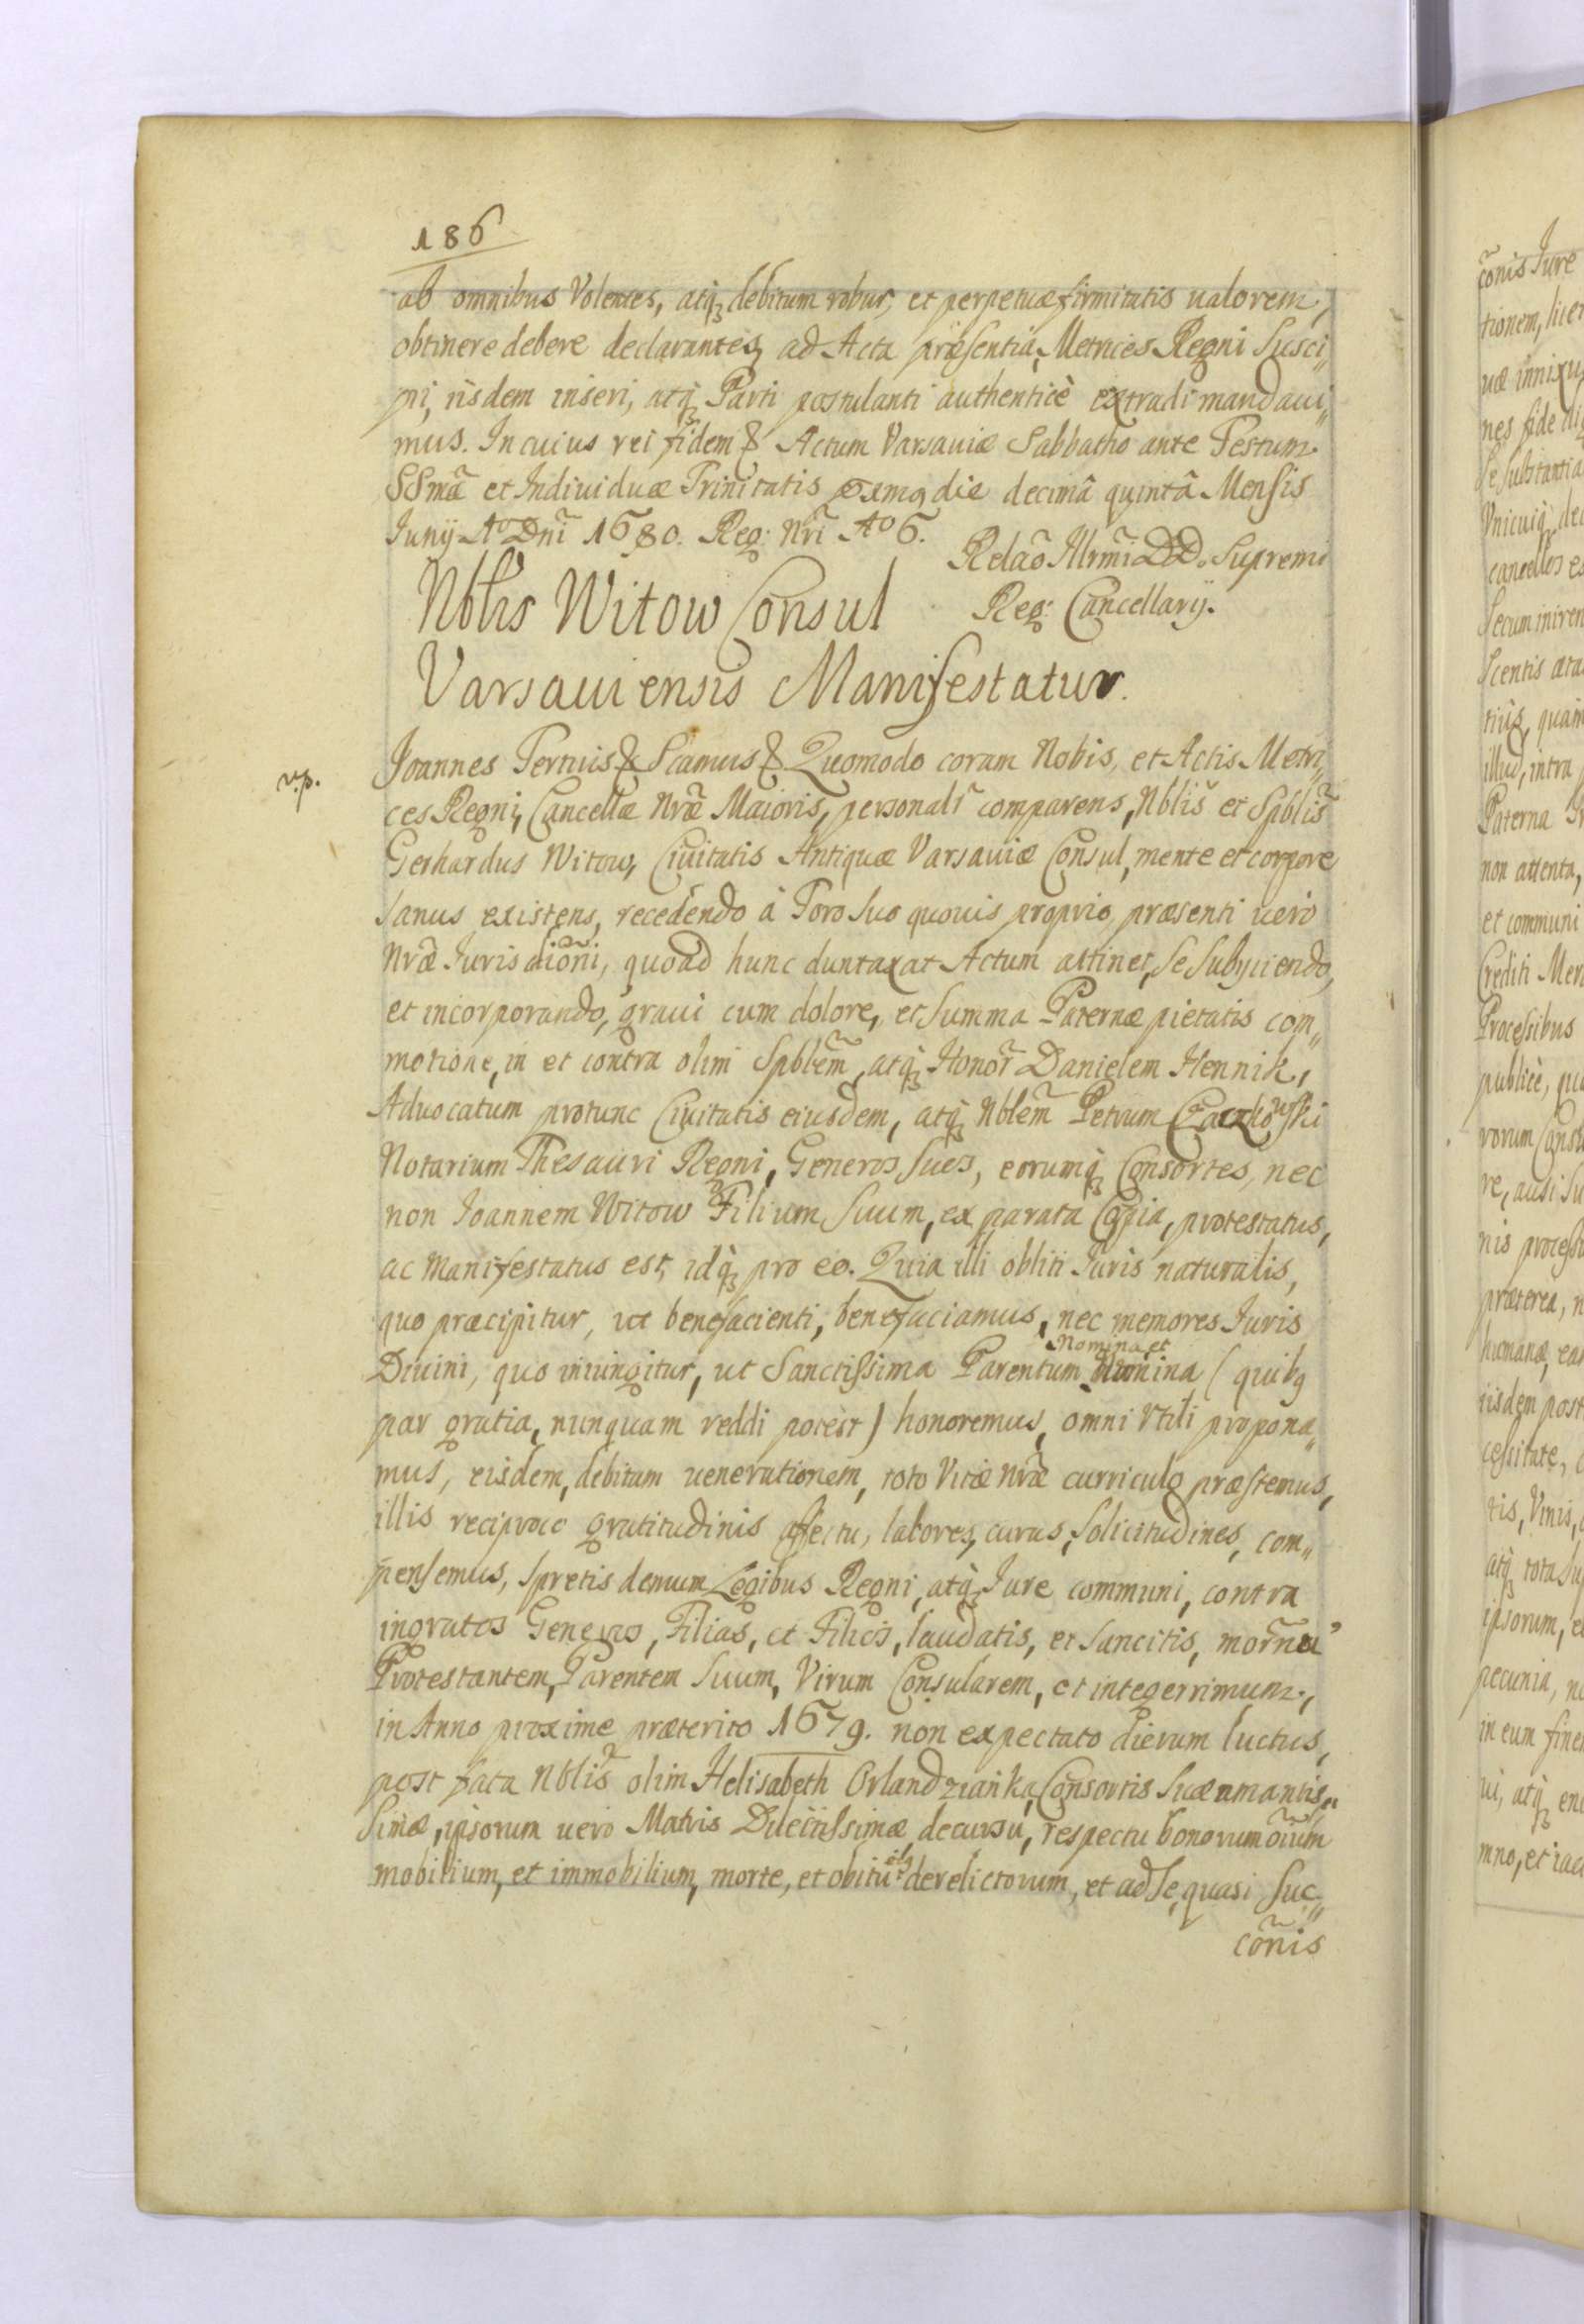 186
ab omnibus Volentes, atq̃ debitum robur, et perpetuæ firmitatis ualorem,
obtinere debere declarantes, ad Acta præsentia, Metrices Regni Susci„
pi, iisdem inseri, atq̃ Parti postulanti authenticè extradi mandaui„
mus. In cuius rei fidem & Actum Varsauiæ Sabbatho ante Festum
SSmã et Indiuiduæ Trinitatis die decimâ quintâ Mensis
Junij Aº Dnĩ 1680. Reg: Nrĩ Aº 6.
Relaõ Illrmĩ DD. Supremi
Reg: Cancellarij.
Nblis Witow Consul
Varsauiensis Manifestatur.
v.p.
Joannes Tertius & Scamus & Quomodo coram Nobis, et Actis Metri„
ces Regni, Cancellæ Nræ̃ Maioris, personalr̃ comparens, Nblis̃ et Spblis̃
Gerhardus Witow, Ciuitatis Antiquæ Varsauiæ Consul, mente et corpore
sanus existens, recedendo à Foro suo quouis proprio, præsenti uero
Nræ̃ Jurisdiõni, quoad hunc duntaxat Actum attinet, se subijciendo,
et incorporando, graui cum dolore, et summa Paternæ pietatis com„
motione, in et contra olim Spblem̃, atq̃ Honor̃ Danielem Hennik,
Aduocatum protunc Ciuitatis eiusdem, atq̃ Nblem̃ Petrum Czaczkowski
Notarium Thesauri Regni, Generos suos, eorumq̃ Consortes, nec
non Joannem Witow Filium suum, ex parata Copia, protestatus,
ac manifestatus est, idq̃ pro eo. Quia illi obliti Juris naturalis,
quo præcipitur, ut benefacienti, benefaciamus, nec memores Juris
Diuini, quo iniungitur, ut Sanctissima Parentum Nomina et Numina (quibq
par gratia, nunquam reddi potest) honoremus, omni Vtili propona„
mus, eisdem, debitam uenerationem, toto Vitæ nræ̃ curriculo præstemus,
illis reciproco gratitudinis affectu, labores, curas, solicitudines, com„
pensemus, spretis demum Legibus Regni, atq̃ Jure communi, contra
ingratos Generos, Filias, et Filios, laudatis, et sancitis,
Protestantem, Parentem suum, Virum Consularem, et integerrimum,
in Anno proxime præterito 1679. non expectato dierum luctus,
post fata Nblis̃ olim Helisabeth Orlandzianka, Consortis suæ amantis„
simæ, ipsorum uero Matris Dilectissimæ decursu, respectu bonorum oĩum
mobilium, et immobilium, morte, et obitu ei9 derelictorum, et ad se, quasi Suc„
cõnis